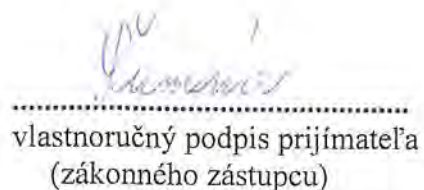 vlastnoručný podpis prijímateľa
(zákonného zástupcu)